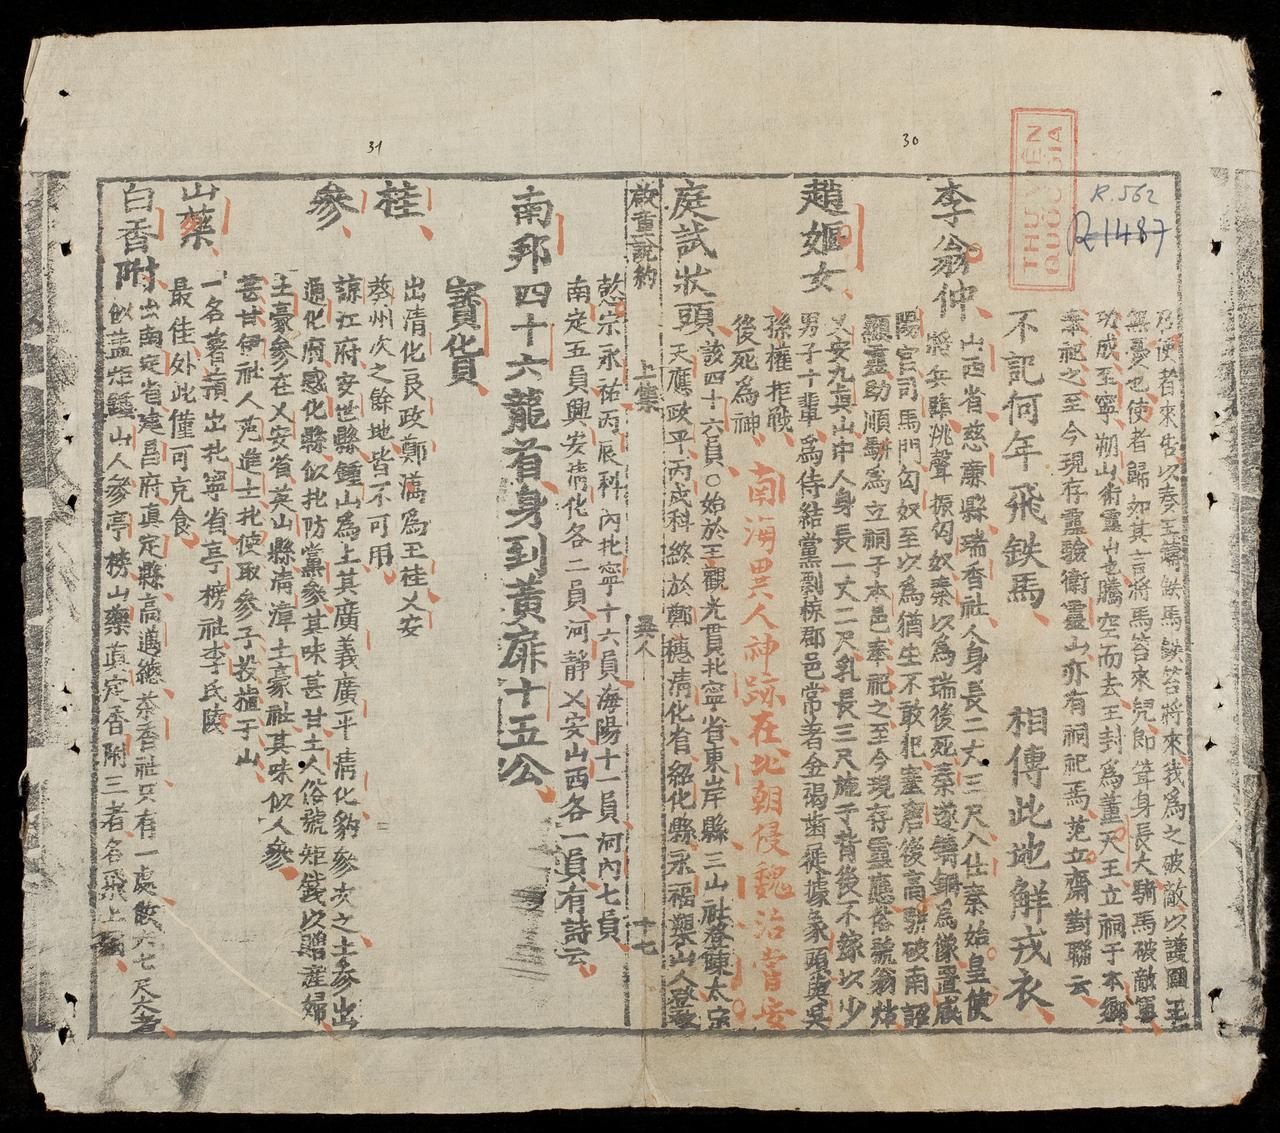 乃使者來告以奏王請鉄馬鉄笞將來我爲之破敵以護國王
無憂也使者歸如其言將馬笞來兒即聳身長大騎馬破敵軍
功成至寧朔山衛靈山竜騰空而去王封爲董天王立祠于本鄉
奉祀之至今現存靈驗衛靈山亦有祠祀焉范立齋對聯云
不記何年飛鉄馬 相傳此地解戎衣
李翁仲
山西省慈廉縣瑞香社人身長二丈三尺入仕秦始皇使
將兵臨洮聲振匈奴秦以爲瑞後死秦遂鑄銅爲像置咸
陽宮司馬門匈奴至以爲猶生不敢犯塞唐後高駢破南詔
顯靈助順駢爲立祠于本邑奉祀之至今現存靈應俗號翁
趙嫗女
乂安九真山中人身長一丈二尺乳長三尺施于背後不嫁以少
男子十輩爲侍結黨剽掠郡邑常著金褐齒屣據象頭與吳
孫權拒戰
後死爲神
南海異人神跡在北朝侵魏治當安
庭試狀頭
該四十六員〇始於王觀光貫北寧省東岸縣三山社登陳太宗
天應政平丙戌科終於鄭穗清化省紹化縣永福社山人登
啟童說約 上集 吳人 十七
懿宗永祐丙辰科內北寧十六員海陽十一員河內七員
南定五員興安清化各二員河靜乂安山西各一員有詩云
南邦四十六龍首身到黃扉十五公
寶貨
桂
出清化良政鄭濡爲王桂乂安
葵州次之餘地皆不可用
參
諒江府安世縣鍾山爲上其廣義廣平清化豹參次之土參出
通化府感化縣似北防黨參其味甚甘土人俗號矩錢以贈產婦
土豪參在乂安省英山縣清漳土豪社其味似人參
芸甘伊社人范進士北使取參子投植于山
山藥
一名薯蕷出北寧省亭榜社李氏陵
最佳外此僅可充食
白香附
出南定省建昌府真定縣高邁總茶香社只有一處餘六七尺
似盖炬鍾山人參亭榜山藥真定香附三者名飛上國
R.562
R 1487
30
31
THƯ VIỆN
QUỐC GIA